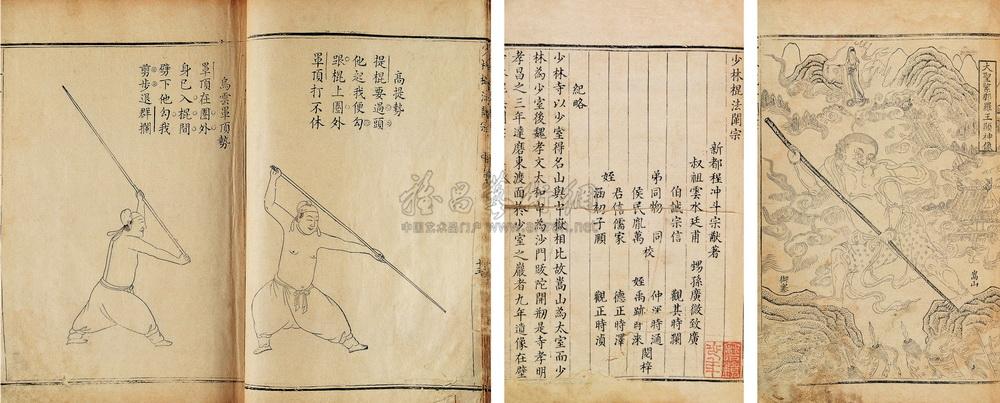 高提勢
提棍要過頭
他起我便勾
跟棍上圈外
單頂打不休
烏雲罩頂勢
單頂在圈外
身已入棍間
劈下他勾我
剪步退群攔
少林棍法闡宗
新都程冲斗宗猷著
叔祖雲水廷甫
伯誠宗信
弟同物 同校
侯民胤萬
君信儒家
姪
涵初子頤
甥孫廣微致廣
觀其時瀾
仲深時通
姪禹跡時來 閱梓
德正時澤
觀正時湞
紀略
少林寺以少室得名山與中嶽相比故嵩山為太室而少
林為少室後魏孝文太和中為沙門䟦陀開刱是寺孝明
孝昌之三年達磨東渡面於少室之巖者九年遺像在壁
大聖緊那羅王顯神像
嵩山
御寨
中国艺术品门户